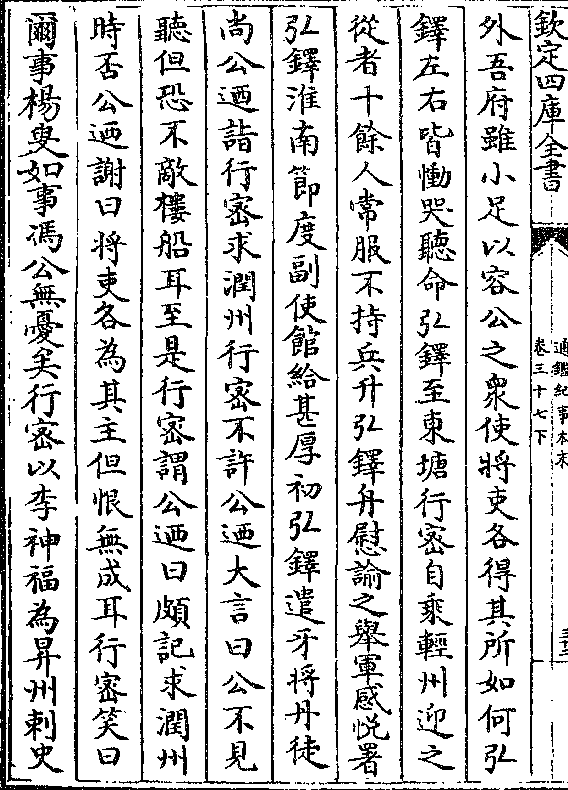 欽定四庫全書
通鑑紀事本末
卷三十七下
外吾府雖小足以容公之衆使將吏各得其所如何弘
鐸左右皆慟哭聽命弘鐸至東塘行密自乘輕舟迎之
從者十餘人常服不持兵升弘鐸舟慰諭之舉軍感悦署
弘鐸淮南節度副使館給甚厚初弘鐸遣牙將丹徒
尚公迺詣行密求潤州行密不許公迺大言曰公不見
聽但恐不敵樓船耳至是行密謂公迺曰頗記求潤州
時否公迺謝曰將吏各為其主但恨無成耳行密笑曰
爾事楊叟如事馮公無憂矣行密以李神福為昇州刺史